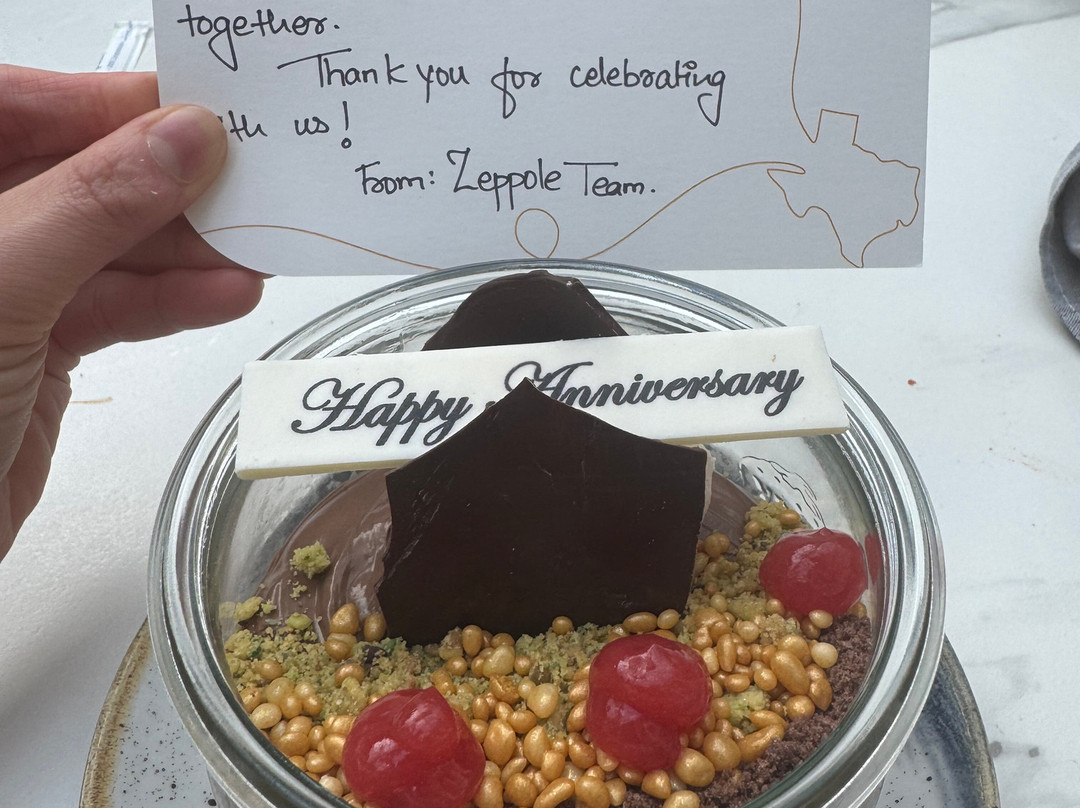 together.
Thank you for celebrating
th us!
From: Zeppole Team.
Happy Anniversary